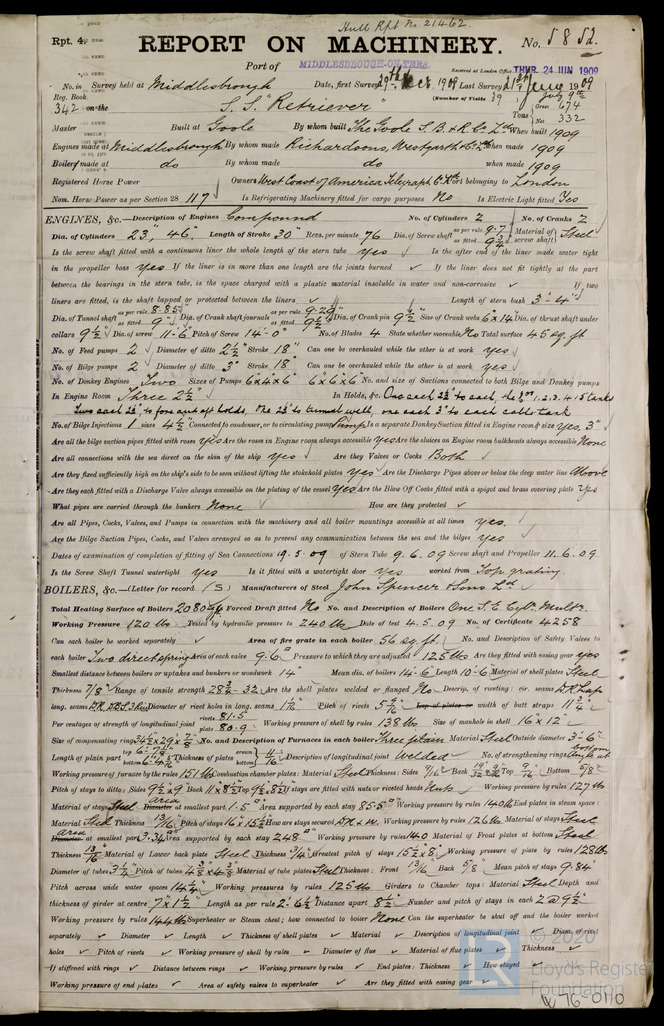 Hull Rpt No. 21462.
Rpt. 4.
REPORT ON MACHINERY. No. 5852.
Port of MIDDLESBROUGH-ON-TEES.
Received at London Office THUR. 24 JUN 1909
No. in Survey held at Middlesbrough Date, first Survey 29th Oct. 1908 Last Survey 21st June 1909
Reg. Book. (Number of Visits 39
342 on the S.S. "Retriever" Tons Gross 674 Net 332
Master Built at Goole By whom built The Goole S.B. & R. Co. Ltd When built 1909
Engines made at Middlesbrough By whom made Richardsons, Westgarth & Co. Ltd when made 1909
Boilers made at do By whom made do when made 1909
Registered Horse Power Owners West Coast of America Telegraph Co. Ltd Port belonging to London
Nom. Horse Power as per Section 28 117 Is Refrigerating Machinery fitted for cargo purposes No Is Electric Light fitted Yes
ENGINES, &c.—Description of Engines Compound No. of Cylinders 2 No. of Cranks 2
Dia. of Cylinders 23", 46" Length of Stroke 30" Revs. per minute 76 Dia. of Screw shaft as per rule 9.7 as fitted 9¾ Material of screw shaft Steel
Is the screw shaft fitted with a continuous liner the whole length of the stern tube yes Is the after end of the liner made water tight
in the propeller boss yes If the liner is in more than one length are the joints burned ✓ If the liner does not fit tightly at the part
between the bearings in the stern tube, is the space charged with a plastic material insoluble in water and non-corrosive ✓ If two
liners are fitted, is the shaft lapped or protected between the liners ✓ Length of stern bush 3'-4"
Dia. of Tunnel shaft as per rule 8.85 as fitted 9" Dia. of Crank shaft journals as per rule 9.29 as fitted 9½ Dia. of Crank pin 9½" Size of Crank webs 6x14 Dia. of thrust shaft under
collars 9½" Dia. of screw 11-6 Pitch of Screw 14'-0" No. of Blades 4 State whether moveable No Total surface 45 sq. ft
No. of Feed pumps 2 Diameter of ditto 2½" Stroke 18" Can one be overhauled while the other is at work yes
No. of Bilge pumps 2 Diameter of ditto 3" Stroke 18" Can one be overhauled while the other is at work yes
No. of Donkey Engines Two Sizes of Pumps 6x4x6 6x6x6 No. and size of Suctions connected to both Bilge and Donkey pumps
In Engine Room Three 2½" In Holds, &c. One each 2½" to each,
No. of Bilge Injections 1 sizes 4½" Connected to condenser, or to circulating pump Pump Is a separate Donkey Suction fitted in Engine room & size yes, 3"
Are all the bilge suction pipes fitted with roses yes Are the roses in Engine room always accessible yes Are the sluices on Engine room bulkheads always accessible None
Are all connections with the sea direct on the skin of the ship yes Are they Valves or Cocks Both
Are they fixed sufficiently high on the ship's side to be seen without lifting the stokehold plates yes Are the Discharge Pipes above or below the deep water line Above
Are they each fitted with a Discharge Valve always accessible on the plating of the vessel yes Are the Blow Off Cocks fitted with a spigot and brass covering plate yes
What pipes are carried through the bunkers None How are they protected ✓
Are all Pipes, Cocks, Valves, and Pumps in connection with the machinery and all boiler mountings accessible at all times yes.
Are the Bilge Suction Pipes, Cocks, and Valves arranged so as to prevent any communication between the sea and the bilges yes
Dates of examination of completion of fitting of Sea Connections 19.5.09 of Stern Tube 9.6.09 Screw shaft and Propeller 11.6.09
Is the Screw Shaft Tunnel watertight yes Is it fitted with a watertight door yes worked from Top grating.
BOILERS, &c.—(Letter for record (S) Manufacturers of Steel John Spencer & Sons Ld
Total Heating Surface of Boilers 2080 Forced Draft fitted No No. and Description of Boilers One S.E. Cyl. Mult.
Working Pressure 120 lbs Tested by hydraulic pressure to 240 lbs Date of test 4.5.09 No. of Certificate 4258
Can each boiler be worked separately ✓ Area of fire grate in each boiler 56 sq. ft. No. and Description of Safety Valves to
each boiler Two direct spring Area of each valve 9.6" Pressure to which they are adjusted 125 lbs Are they fitted with easing gear yes
Smallest distance between boilers or uptakes and bunkers or woodwork 14" Mean dia. of boilers 14-6 Length 10-6 Material of shell plates Steel
Thickness 7/8" Range of tensile strength 28½-32 Are the shell plates welded or flanged No Descrip. of riveting: cir. seams D.R. Lap
long. seams Diameter of rivet holes in long. seams Pitch of rivets Lap of plates or width of butt straps
Per centages of strength of longitudinal joint rivets 81.5 plate 80.9 Working pressure of shell by rules 138 lbs Size of manhole in shell 16" x 12"
Size of compensating ring No. and Description of Furnaces in each boiler Three plain Material Steel Outside diameter 3'-6"
Length of plain part top bottom Thickness of plates crown bottom 11/16 Description of longitudinal joint Welded No. of strengthening rings
Working pressure of furnace by the rules 151 lbs Combustion chamber plates: Material Steel Thickness: Sides 9/16" Back Top 9/16" Bottom 5/8"
Pitch of stays to ditto: Sides 9½x9 Back Top If stays are fitted with nuts or riveted heads Nuts Working pressure by rules 127 lbs
Material of stays Steel Area at smallest part 1.5 Area supported by each stay 85.5" Working pressure by rules 140 lbs End plates in steam space:
Material Steel Thickness 13/16" Pitch of stays 16x15½ How are stays secured Working pressure by rules 126 lbs Material of stays Steel
Area at smallest part 3.34 Area supported by each stay 248" Working pressure by rules 140 Material of Front plates at bottom Steel
Thickness 13/16 Material of Lower back plate Steel Thickness 3/4" Greatest pitch of stays 15½x8 Working pressure of plate by rules 128 lbs
Diameter of tubes 3¼ Pitch of tubes 4⅜x4⅜ Material of tube plates Steel Thickness: Front 13/16 Back 5/8" Mean pitch of stays 9.84"
Pitch across wide water spaces 14¼" Working pressures by rules 125 lbs Girders to Chamber tops: Material Steel Depth and
thickness of girder at centre 7x1½" Length as per rule 2-6½ Distance apart 8½" Number and pitch of stays in each 2 @ 9½"
Working pressure by rules 144 lbs Superheater or Steam chest; how connected to boiler None Can the superheater be shut off and the boiler worked
separately ✓ Diameter ✓ Length ✓ Thickness of shell plates ✓ Material ✓ Description of longitudinal joint ✓ Diam. of rivet
holes ✓ Pitch of rivets ✓ Working pressure of shell by rules ✓ Diameter of flue ✓ Material of flue plates ✓ Thickness ✓
If stiffened with rings ✓ Distance between rings ✓ Working pressure by rules ✓ End plates: Thickness ✓ How stayed ✓
Working pressure of end plates ✓ Area of safety valves to superheater ✓ Are they fitted with easing gear ✓
© 2020
Lloyd's Register
Foundation
W76-0110